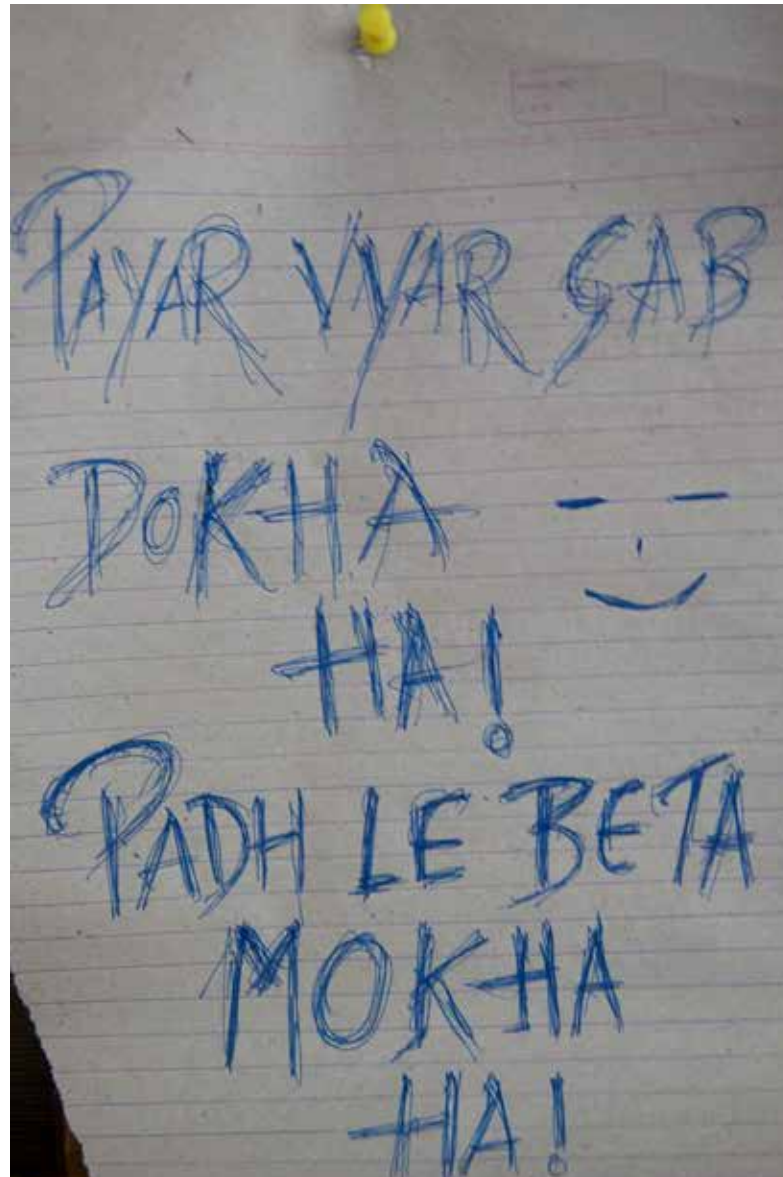 PAYAR VYAR SAB
DOKHA
HA!
PADH LE BETA
MOKHA
HA!